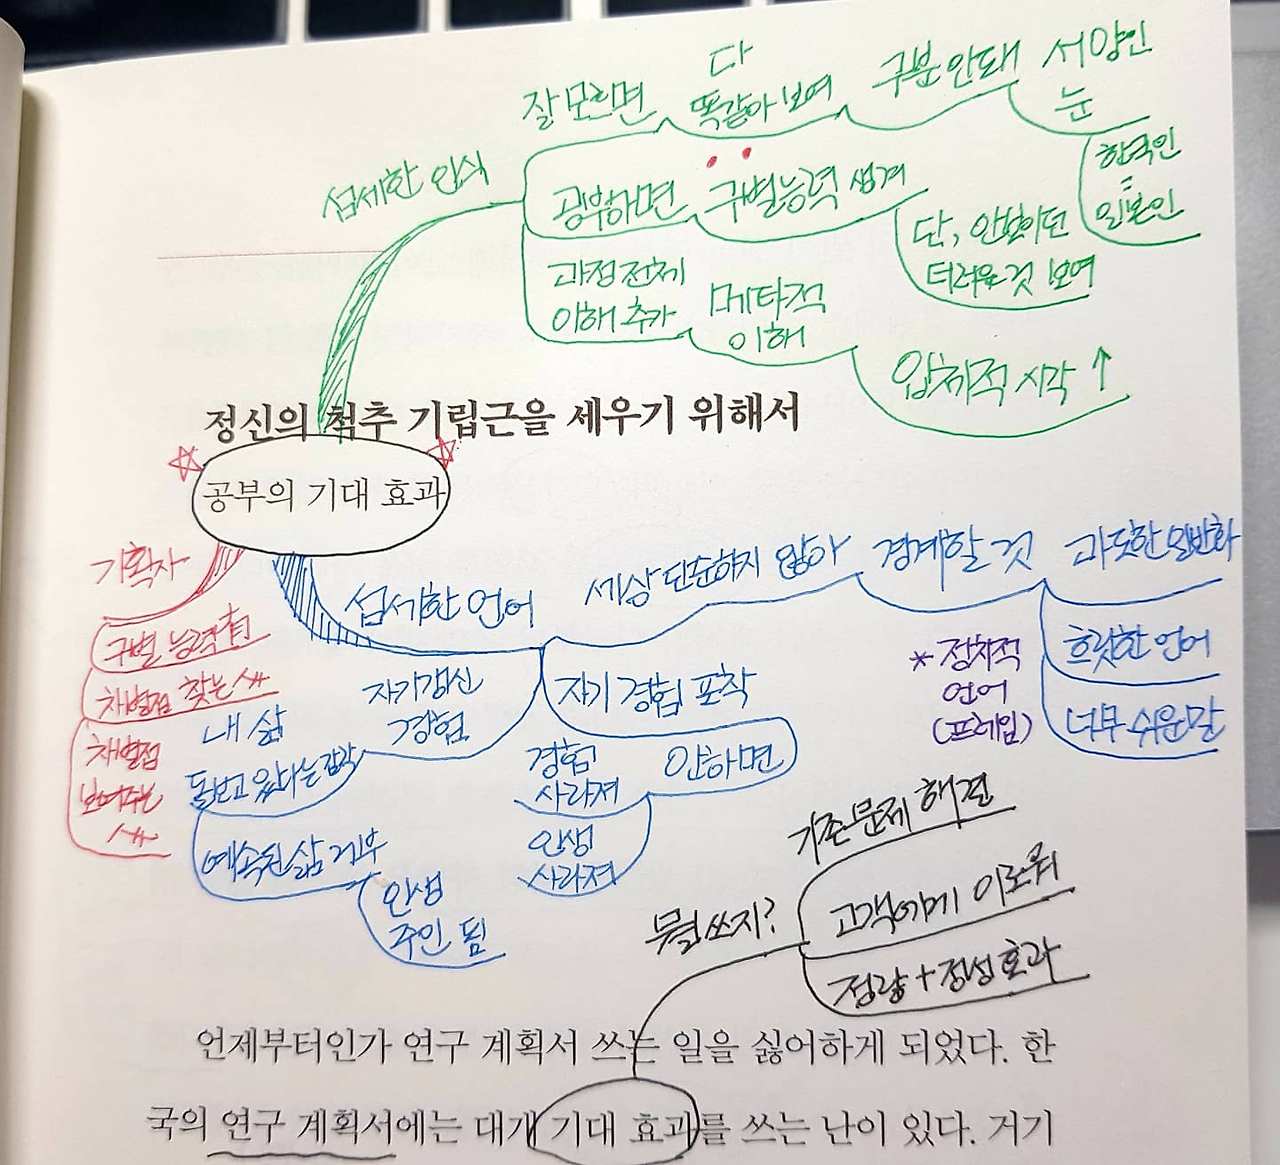 섬세한 인식
잘 모르면
다
똑같아 보여
구분 안돼
서양인
눈
한국인
=
일본인
공부하면
구별능력 생겨
단, 안보이던
더러운 것 보여
과정 전체
이해 추가
메타적
이해
입체적 시각 ↑
정신의 척추 기립근을 세우기 위해서
공부의 기대 효과
기획자
구별 능력 有
차별점 찾는 人
차별점
보여주는
人
섬세한 언어
세상 단순하지 않아
경계할 것
과도한 일반화
흐릿한 언어
너무 쉬운 말
* 정치적
언어
(프레임)
자기 경험 포착
안하면
경험
사라져
인생
사라져
자기갱신
경험
내 삶
돌보고 있다는 감각
예속된 삶 거부
인생
주인 됨
뭘 쓰지?
기존 문제 해결
고객에게 이로움
정량 + 정성 효과
언제부터인가 연구 계획서 쓰는 일을 싫어하게 되었다. 한
국의 연구 계획서에는 대개 기대 효과를 쓰는 난이 있다. 거기